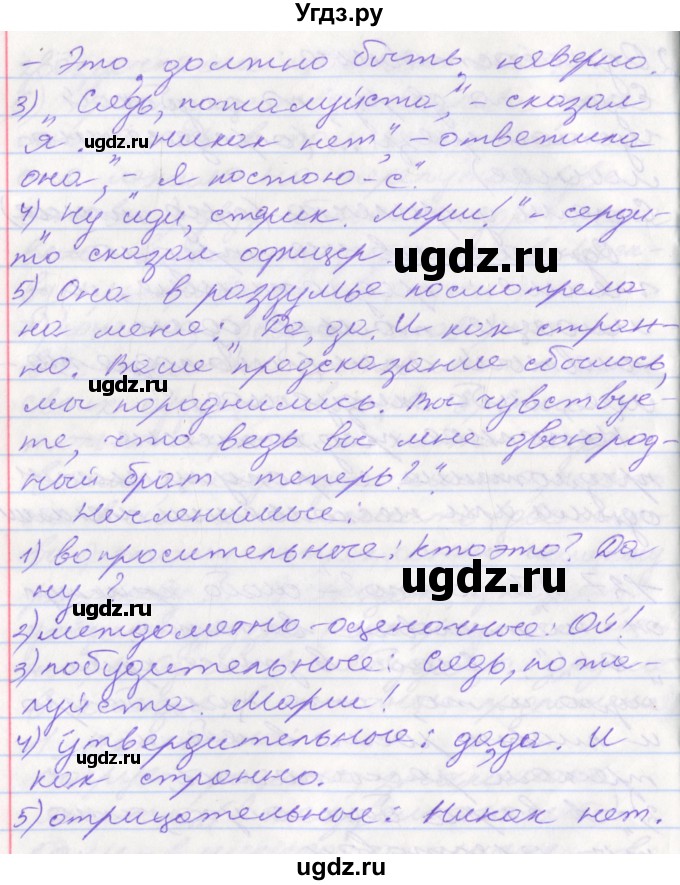 Угдз.ру
– Это должно быть неверно.
3) „Сядь, пожалуйста," – сказал
я. „Никак нет," – ответила
она, „– Я постою-с".
4) „Ну иди, старик. Марш!" – серди-
то сказал офицер.
ugdz.ru
5) Она в раздумье посмотрела
на меня: „Да, да. И как стран-
но. Ваше предсказание сбылось,
мы породнились. Вы чувствуе-
те, что ведь вы мне двоюрод-
ный брат теперь?".
Нечленимые:
1) вопросительные: Кто это? Да
ну?
2) междометно-оценочные: Ой!
3) побудительные: Сядь, пожа-
луйста. Марш!
4) утвердительные: да, да. И
как странно.
5) отрицательные: Никак нет.
ugdz.ru
ugdz.ru
ugdz.ru
ugdz.ru
ugdz.ru
ugdz.ru
ugdz.ru